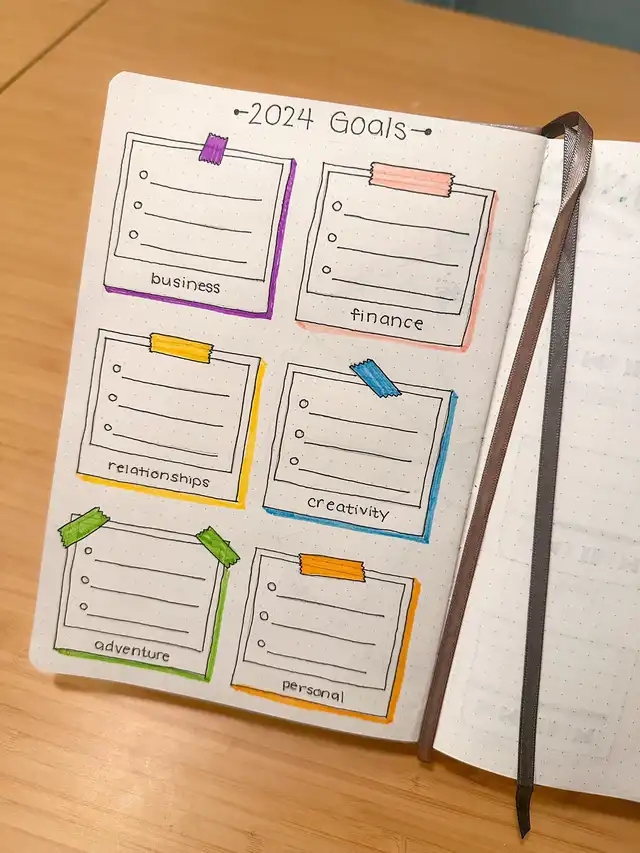 2024 Goals
business
finance
relationships
creativity
adventure
personal